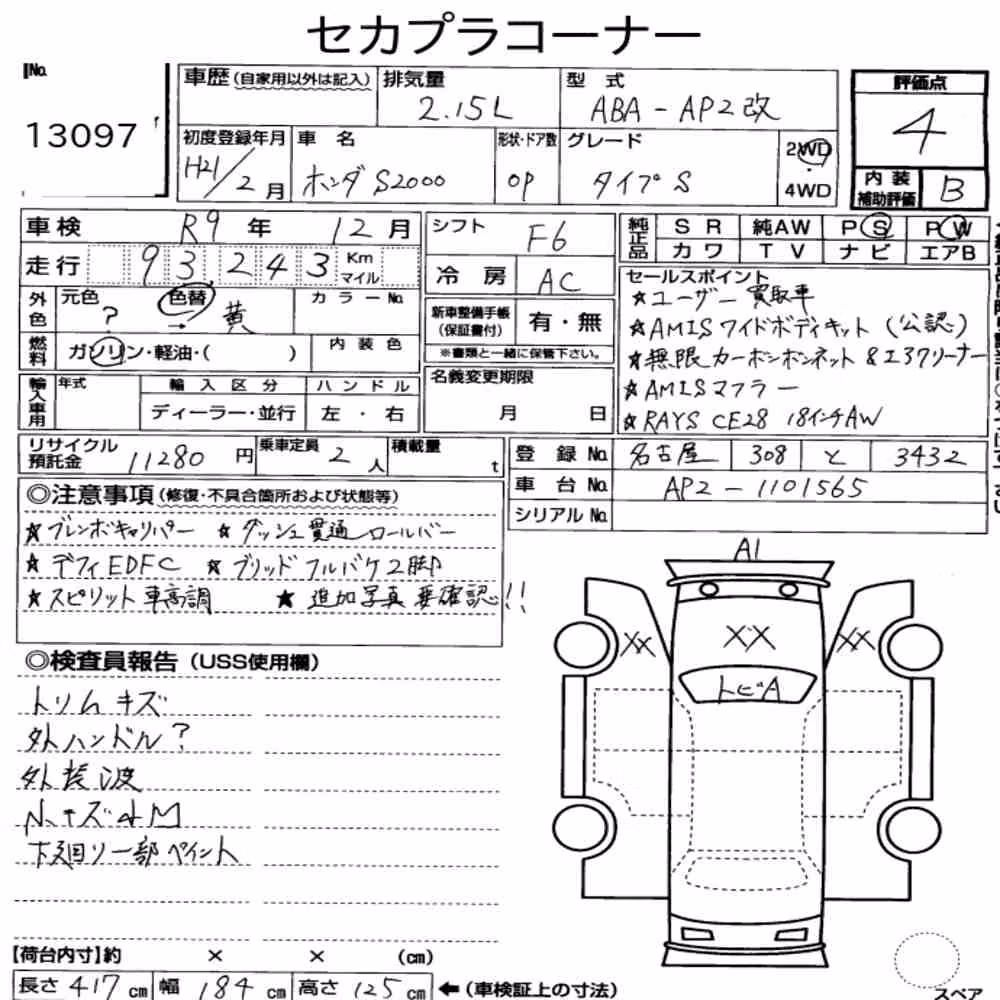 セカプラコーナー
No.
13097
車歴(自家用以外は記入)
排気量
2.15L
型 式
ABA - AP2改
評価点
4
初度登録年月
H21/2月
車 名
ホンダ S2000
形状・ドア数
OP
グレード
タイプS
2WD
・
4WD
内装
補助評価
B
車検 R9年 12月
走行 93,243 Km マイル
シフト F6
冷房 AC
純正品
SR 純AW PS PW
カワ TV ナビ エアB
外色
元色 ?
色替 → 黄
カラーNo.
燃料
ガソリン・軽油・( )
内装色
新車整備手帳
(保証書付)
有・無
※書類と一緒に保管下さい。
セールスポイント
☆ユーザー買取車
☆AMISワイドボディキット(公認)
☆無限カーボンボンネット&エアクリーナー
☆AMISマフラー
☆RAYS CE28 18インチAW
輸入車用
年式
輸入区分
ハンドル
ディーラー・並行
左・右
名義変更期限
月 日
リサイクル
預託金
11280円
乗車定員 2人
積載量 t
登録No. 名古屋 308 と 3432
車台No. AP2-1101565
シリアルNo.
◎注意事項(修復・不具合箇所および状態等)
☆ブレンボキャリパー ☆ダッシュ貫通ロールバー
☆デフィEDFC ☆ブリッドフルバケ2脚
☆スピリット車高調 ★追加写真要確認!!
A1
XX XX XX
トビA
◎検査員報告(USS使用欄)
トリムキズ
外ハンドル?
外装波
下廻り一部ペイント
【荷台内寸】約 × × (cm)
長さ 417cm 幅 184cm 高さ 125cm ←(車検証上の寸法)
スペア